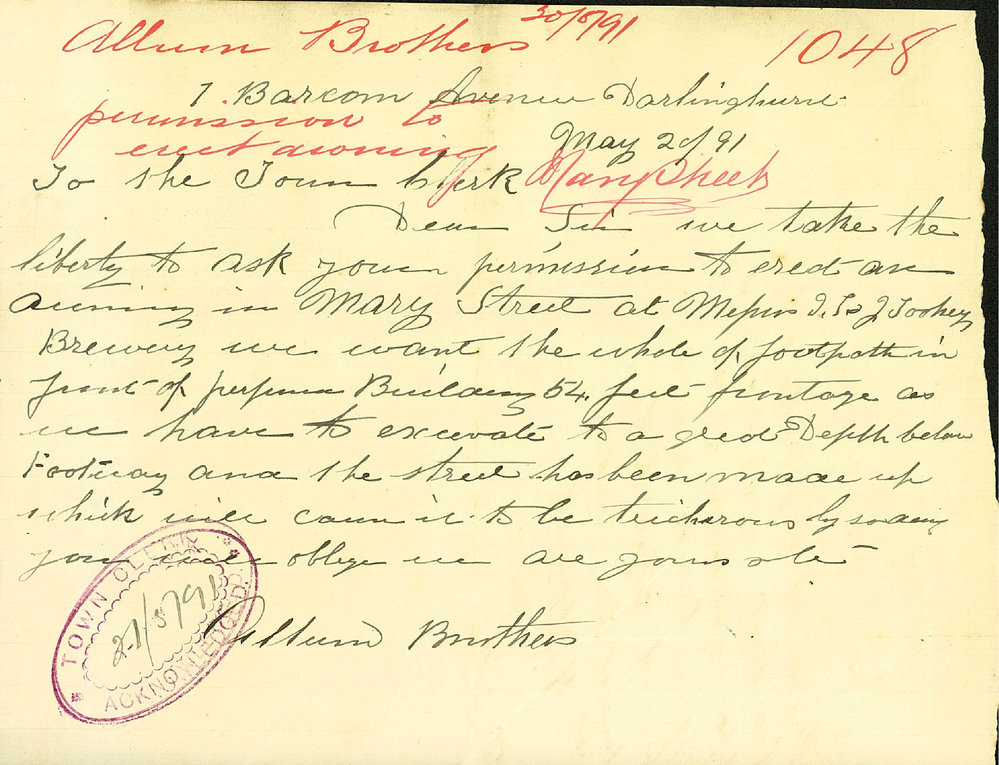 30/5/91
Allum Brothers 1048
7 Barcom Avenue Darlinghurst
permission to
erect awning May 20/91
To the Town Clerk Mary Street
Dear Sir we take the
liberty to ask your permission to erect an
awning in Mary Street at Messrs J. T & J Toohey
Brewery we want the whole of footpath in
front of Building 54 feet frontage as
we have to excavate to a great Depth below
Footway and the street has been made up
which will cause it to be tricherous by so doing
you will oblige we are yours etc
Allum Brothers
TOWN CLERK
21/5/91
ACKNOWLEDGED.